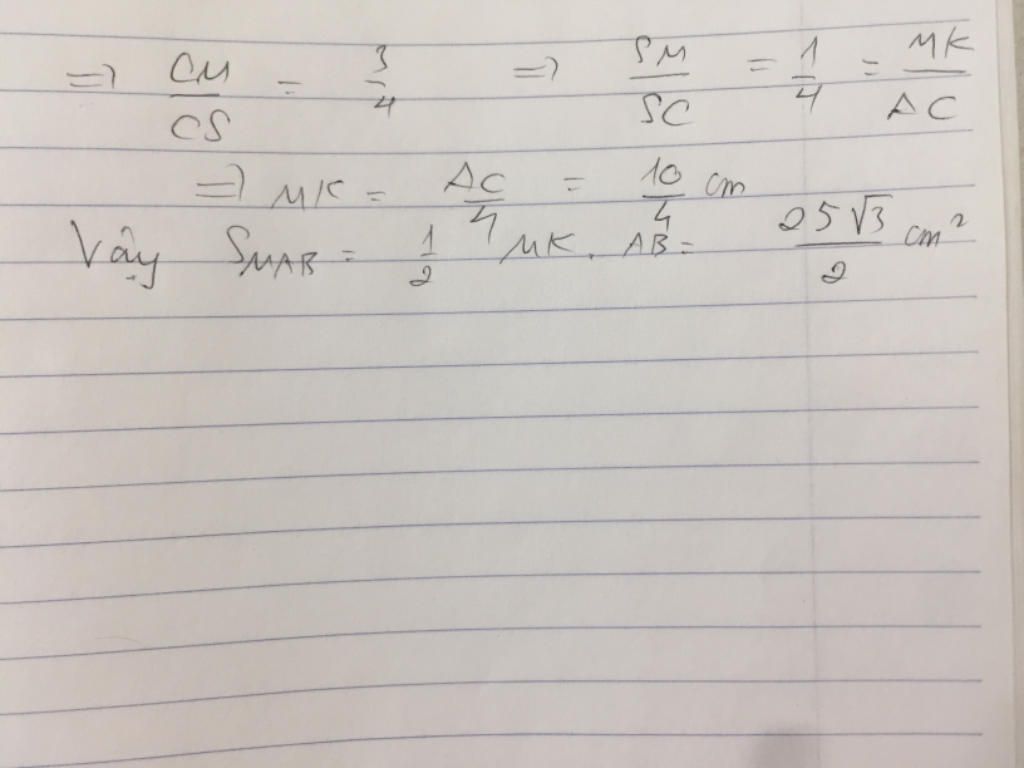 => CM/CS = 3/4 => SM/SC = 1/4 = MK/AC
=> MK = AC/4 = 10/4 cm
Vậy SMAB = 1/2 MK. AB = 25√3/2 cm²